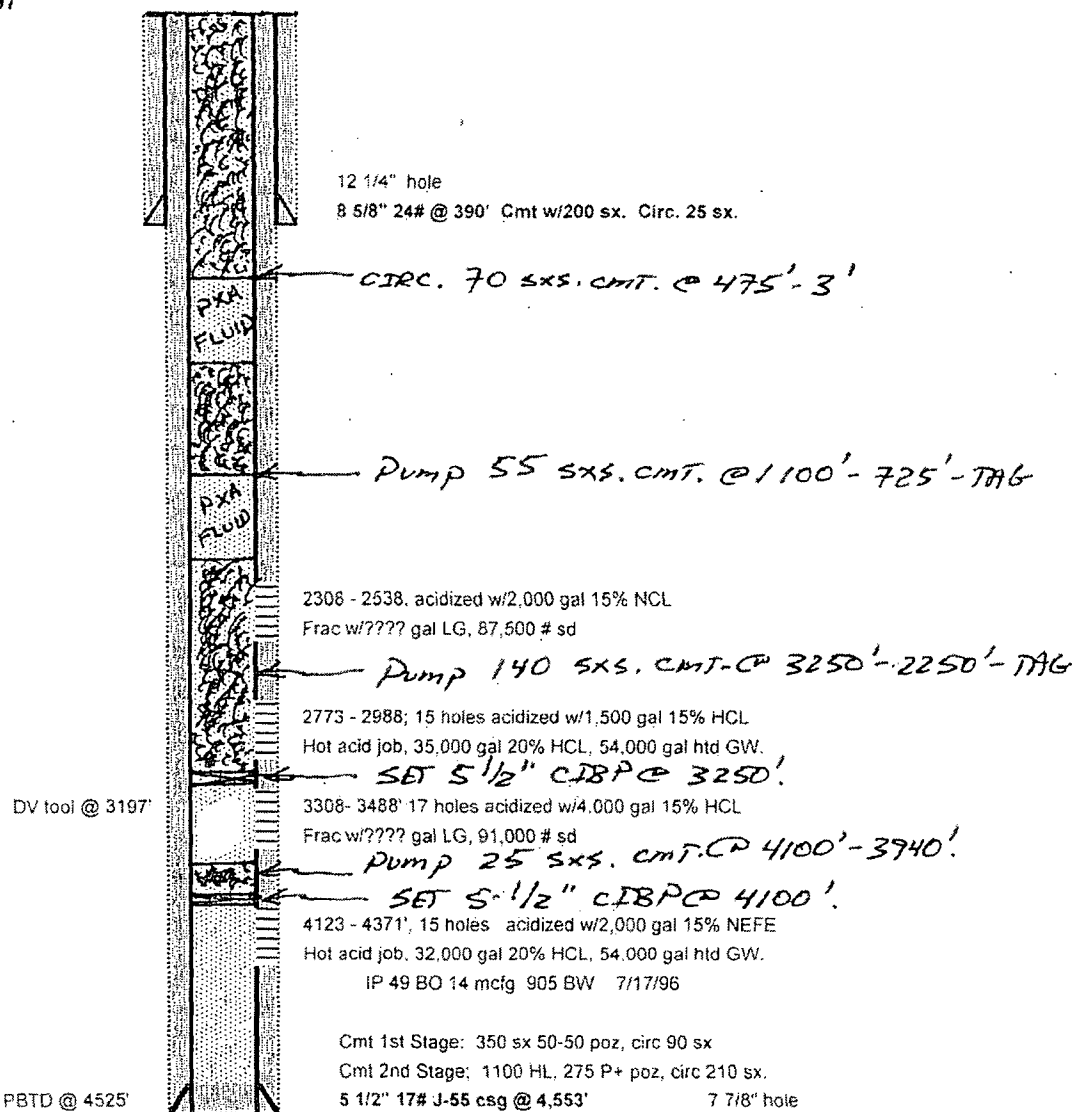 12 1/4" hole
8 5/8" 24# @ 390' Cmt w/200 sx. Circ. 25 sx.
CIRC. 70 SXS. CMT. @ 475'-3'
PXA
FLUID
Pump 55 SXS. CMT. @ 1100'-725'-TAG
PXA
FLUID
2308 - 2538, acidized w/2,000 gal 15% NCL
Frac w/???? gal LG, 87,500 # sd
Pump 140 SXS. CMT. @ 3250'-2250'-TAG
2773 - 2988; 15 holes acidized w/1,500 gal 15% HCL
Hot acid job, 35,000 gal 20% HCL, 54,000 gal htd GW.
SET 5 1/2" CIBP @ 3250'.
DV tool @ 3197'
3308- 3488' 17 holes acidized w/4,000 gal 15% HCL
Frac w/???? gal LG, 91,000 # sd
Pump 25 SXS. CMT. @ 4100'-3940'.
SET 5-1/2" CIBP @ 4100'.
4123 - 4371', 15 holes acidized w/2,000 gal 15% NEFE
Hot acid job, 32,000 gal 20% HCL, 54,000 gal htd GW.
IP 49 BO 14 mcfg 905 BW 7/17/96
Cmt 1st Stage: 350 sx 50-50 poz, circ 90 sx
Cmt 2nd Stage; 1100 HL, 275 P+ poz, circ 210 sx.
PBTD @ 4525'
5 1/2" 17# J-55 csg @ 4,553' 7 7/8" hole